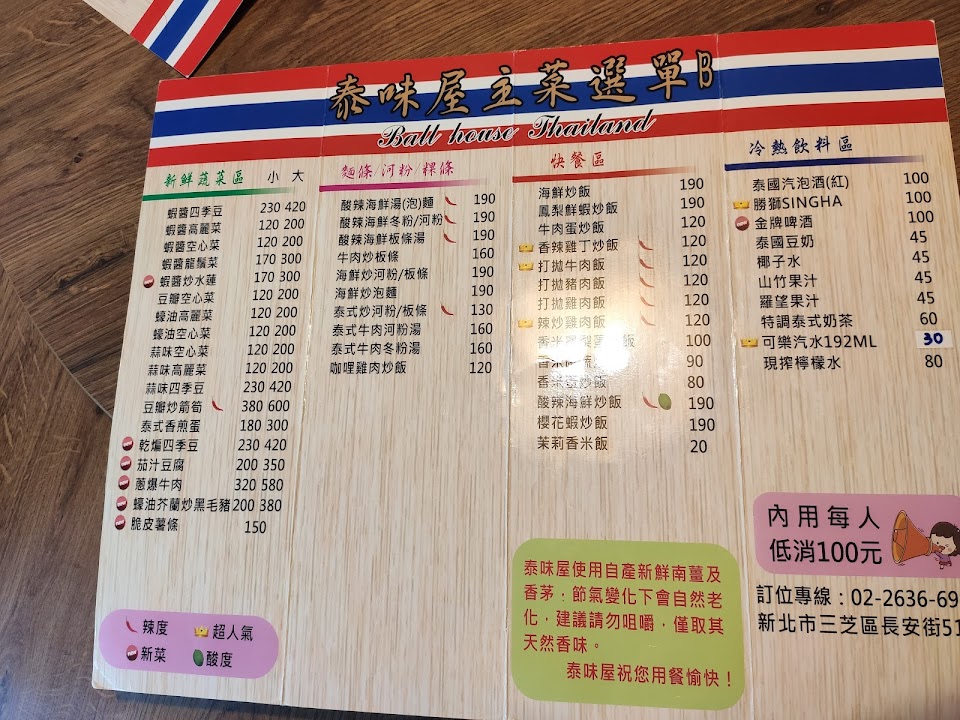 泰味屋主菜選單B
Ball house Thailand
新鮮蔬菜區 小 大
蝦醬四季豆 230 420
蝦醬高麗菜 120 200
蝦醬空心菜 120 200
蝦醬龍鬚菜 170 300
蝦醬炒水蓮 170 300
豆瓣空心菜 120 200
蠔油高麗菜 120 200
蠔油空心菜 120 200
蒜味空心菜 120 200
蒜味高麗菜 120 200
蒜味四季豆 230 420
豆瓣炒箭筍 380 600
泰式香煎蛋 180 300
乾煸四季豆 230 420
茄汁豆腐 200 350
蔥爆牛肉 320 580
蠔油芥蘭炒黑毛豬 200 380
脆皮薯條 150
辣度 超人氣
新菜 酸度
麵條/河粉/粿條
酸辣海鮮湯(泡)麵 190
酸辣海鮮冬粉/河粉 190
酸辣海鮮板條湯 190
牛肉炒板條 160
海鮮炒河粉/板條 190
海鮮炒泡麵 190
泰式炒河粉/板條 130
泰式牛肉河粉湯 160
泰式牛肉冬粉湯 160
咖哩雞肉炒飯 120
快餐區
海鮮炒飯 190
鳳梨鮮蝦炒飯 190
牛肉蛋炒飯 120
香辣雞丁炒飯 120
打拋牛肉飯 120
打拋豬肉飯 120
打拋雞肉飯 120
辣炒雞肉飯 120
香米 飯 100
香米 90
香 炒飯 80
酸辣海鮮炒飯 190
櫻花蝦炒飯 190
茉莉香米飯 20
泰味屋使用自產新鮮南薑及
香茅．節氣變化下會自然老
化，建議請勿咀嚼，僅取其
天然香味。
泰味屋祝您用餐愉快！
冷熱飲料區
泰國汽泡酒(紅) 100
勝獅SINGHA 100
金牌啤酒 100
泰國豆奶 45
椰子水 45
山竹果汁 45
羅望果汁 45
特調泰式奶茶 60
可樂汽水192ML 30
現搾檸檬水 80
內用每人
低消100元
訂位專線：02-2636-69
新北市三芝區長安街51